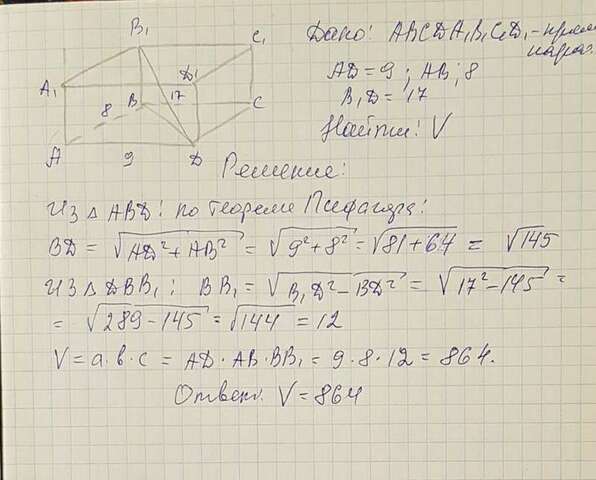 B₁ C₁
A₁ D₁
8 B 17 C
A 9 D
Дано: ABCDA₁B₁C₁D₁ - прям.
AD = 9 ; AB ; 8
B₁D = 17
Найти: V
Решение:
Из △ ABD: по теореме Пифагора:
BD = √AD² + AB² = √9² + 8² = √81 + 64 = √145
Из △ DBB₁: BB₁ = √B₁D² - BD² = √17² - 145 =
= √289 - 145 = √144 = 12
V = a · b · c = AD · AB · BB₁ = 9 · 8 · 12 = 864.
Ответ. V = 864